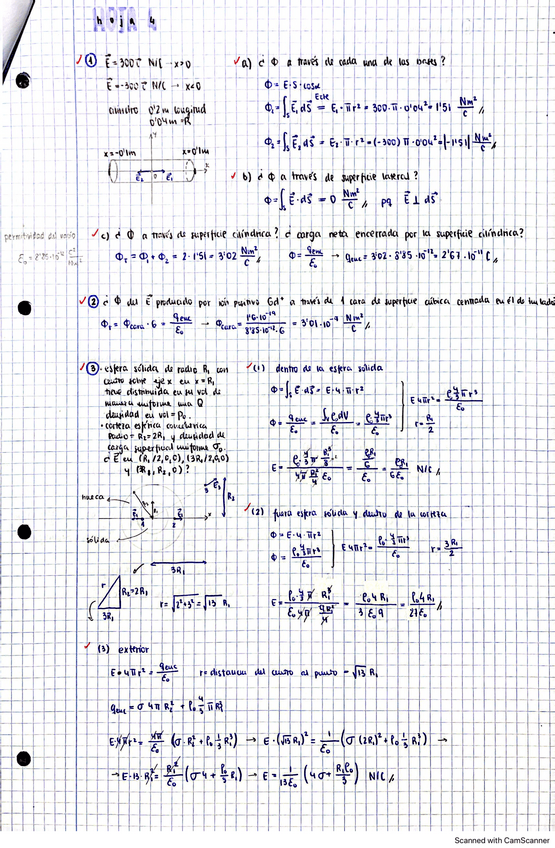 hoja 4
① E⃗ = 300 i⃗ N/C → x>0
E⃗ = -300 i⃗ N/C → x<0
cilindro 0'2m longitud
0'04m = R
x=-0'1m x=0'1m
a) ¿ Φ a través de cada una de las bases?
Φ = E·S·cosα
Φ₁ = ∫ E⃗₁ dS⃗ = E₁·πr² = 300·π·0'04² = 1'51 Nm²/C
Φ₂ = ∫ E⃗₂ dS⃗ = E₂·π·r² = (-300)π·0'04² = |-1'51| Nm²/C
b) ¿ Φ a través de superficie lateral?
Φ = ∫ E⃗·dS⃗ = 0 Nm²/C pq E⃗ ⊥ dS⃗
permitividad del vacío
c) ¿ Φ a través de superficie cilíndrica? ¿ carga neta encerrada por la superficie cilíndrica?
Φ = Φ₁ + Φ₂ = 2·1'51 = 3'02 Nm²/C Φ = q enc/ε₀ → q enc = 3'02·8'85·10⁻¹² = 2'67·10⁻¹¹ C
② ¿ Φ del E⃗ producido por ión positivo Gd⁺ a través de 1 cara de superficie cúbica centrada en él de
Φ = Φcara·6 = q enc/ε₀ → Φcara = 1'6·10⁻¹⁹/8'85·10⁻¹²·6 = 3'01·10⁻⁹ Nm²/C
③ - esfera sólida de radio R₁ con
centro sobre eje x en x = R₁
tiene distribuida en su vol de
manera uniforme una Q
densidad en vol = ρ₀.
- corteza esférica concéntrica
radio = R₂ = 2R₁ y densidad de
carga superficial uniforme σ₀.
¿ E⃗ en (R₁/2,0,0), (3R₁/2,0,0)
hueca
sólida
3R₁
R₂ = 2R₁
r = √2²+3² = √13 R₁
(1) dentro de la esfera sólida
Φ = ∫ E⃗·dS⃗ = E·4·πr²
Φ = q enc/ε₀ = ∫ρdV/ε₀ = ρ₀ 4/3 πr³/ε₀
E4πr² = ρ₀ 4/3 πr³/ε₀
r = R/2
= ρR₁/6ε₀ N/C
(2) fuera esfera sólida y dentro de la corteza
Φ = E·4·πr²
Φ = ρ₀ 4/3 πr³/ε₀
E4πr² = ρ₀·4/3 πr³/ε₀ r = 3R₁/2
= ρ₀4R₁/3ε₀9 = ρ₀4R₁/27ε₀
(3) exterior
E·4πr² = q enc/ε₀ r = distancia del centro al punto = √13 R₁
q enc = σ4πR₂² + ρ₀ 4/3 πR₁³
E·4πr² = 4π/ε₀ (σ·R₂² + ρ₀ 1/3 R₁³) → E·(√13 R₁)² = 1/ε₀ (σ(2R₁)² + ρ₀ 1/3 R₁³) →
→ E·13·R₁² = R₁²/ε₀ (σ4 + ρ₀/3 R₁) → E = 1/13ε₀ (4σ + R₁ρ₀/3) N/C
Scanned with CamScanner